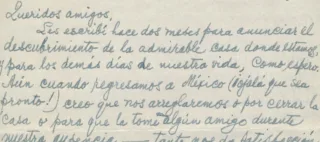 Queridos amigos,
Les escribí hace dos meses para anunciar el
descubrimiento de la admirable casa donde estamos,
y para los demás días de nuestra vida, como espero.
Aún cuando regresamos a México (ojalá que sea
pronto!) creo que nos arreglaremos o por cerrar la
casa o para que la tome algún amigo durante
nuestra ausencia. tanto nos da satisfacción